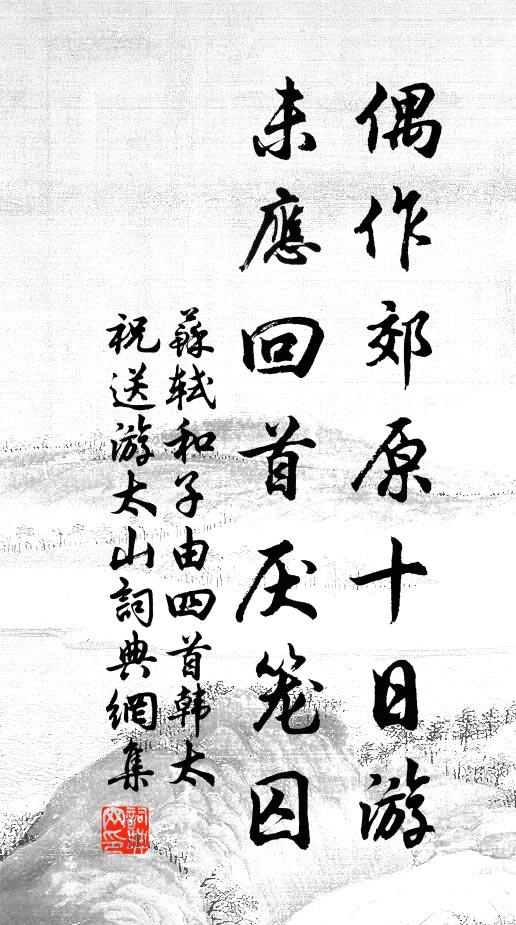 偶作郊原十日游
未應回首厌笼囚
蘇軾和子由四首韩太
祝送游太山詞典網集